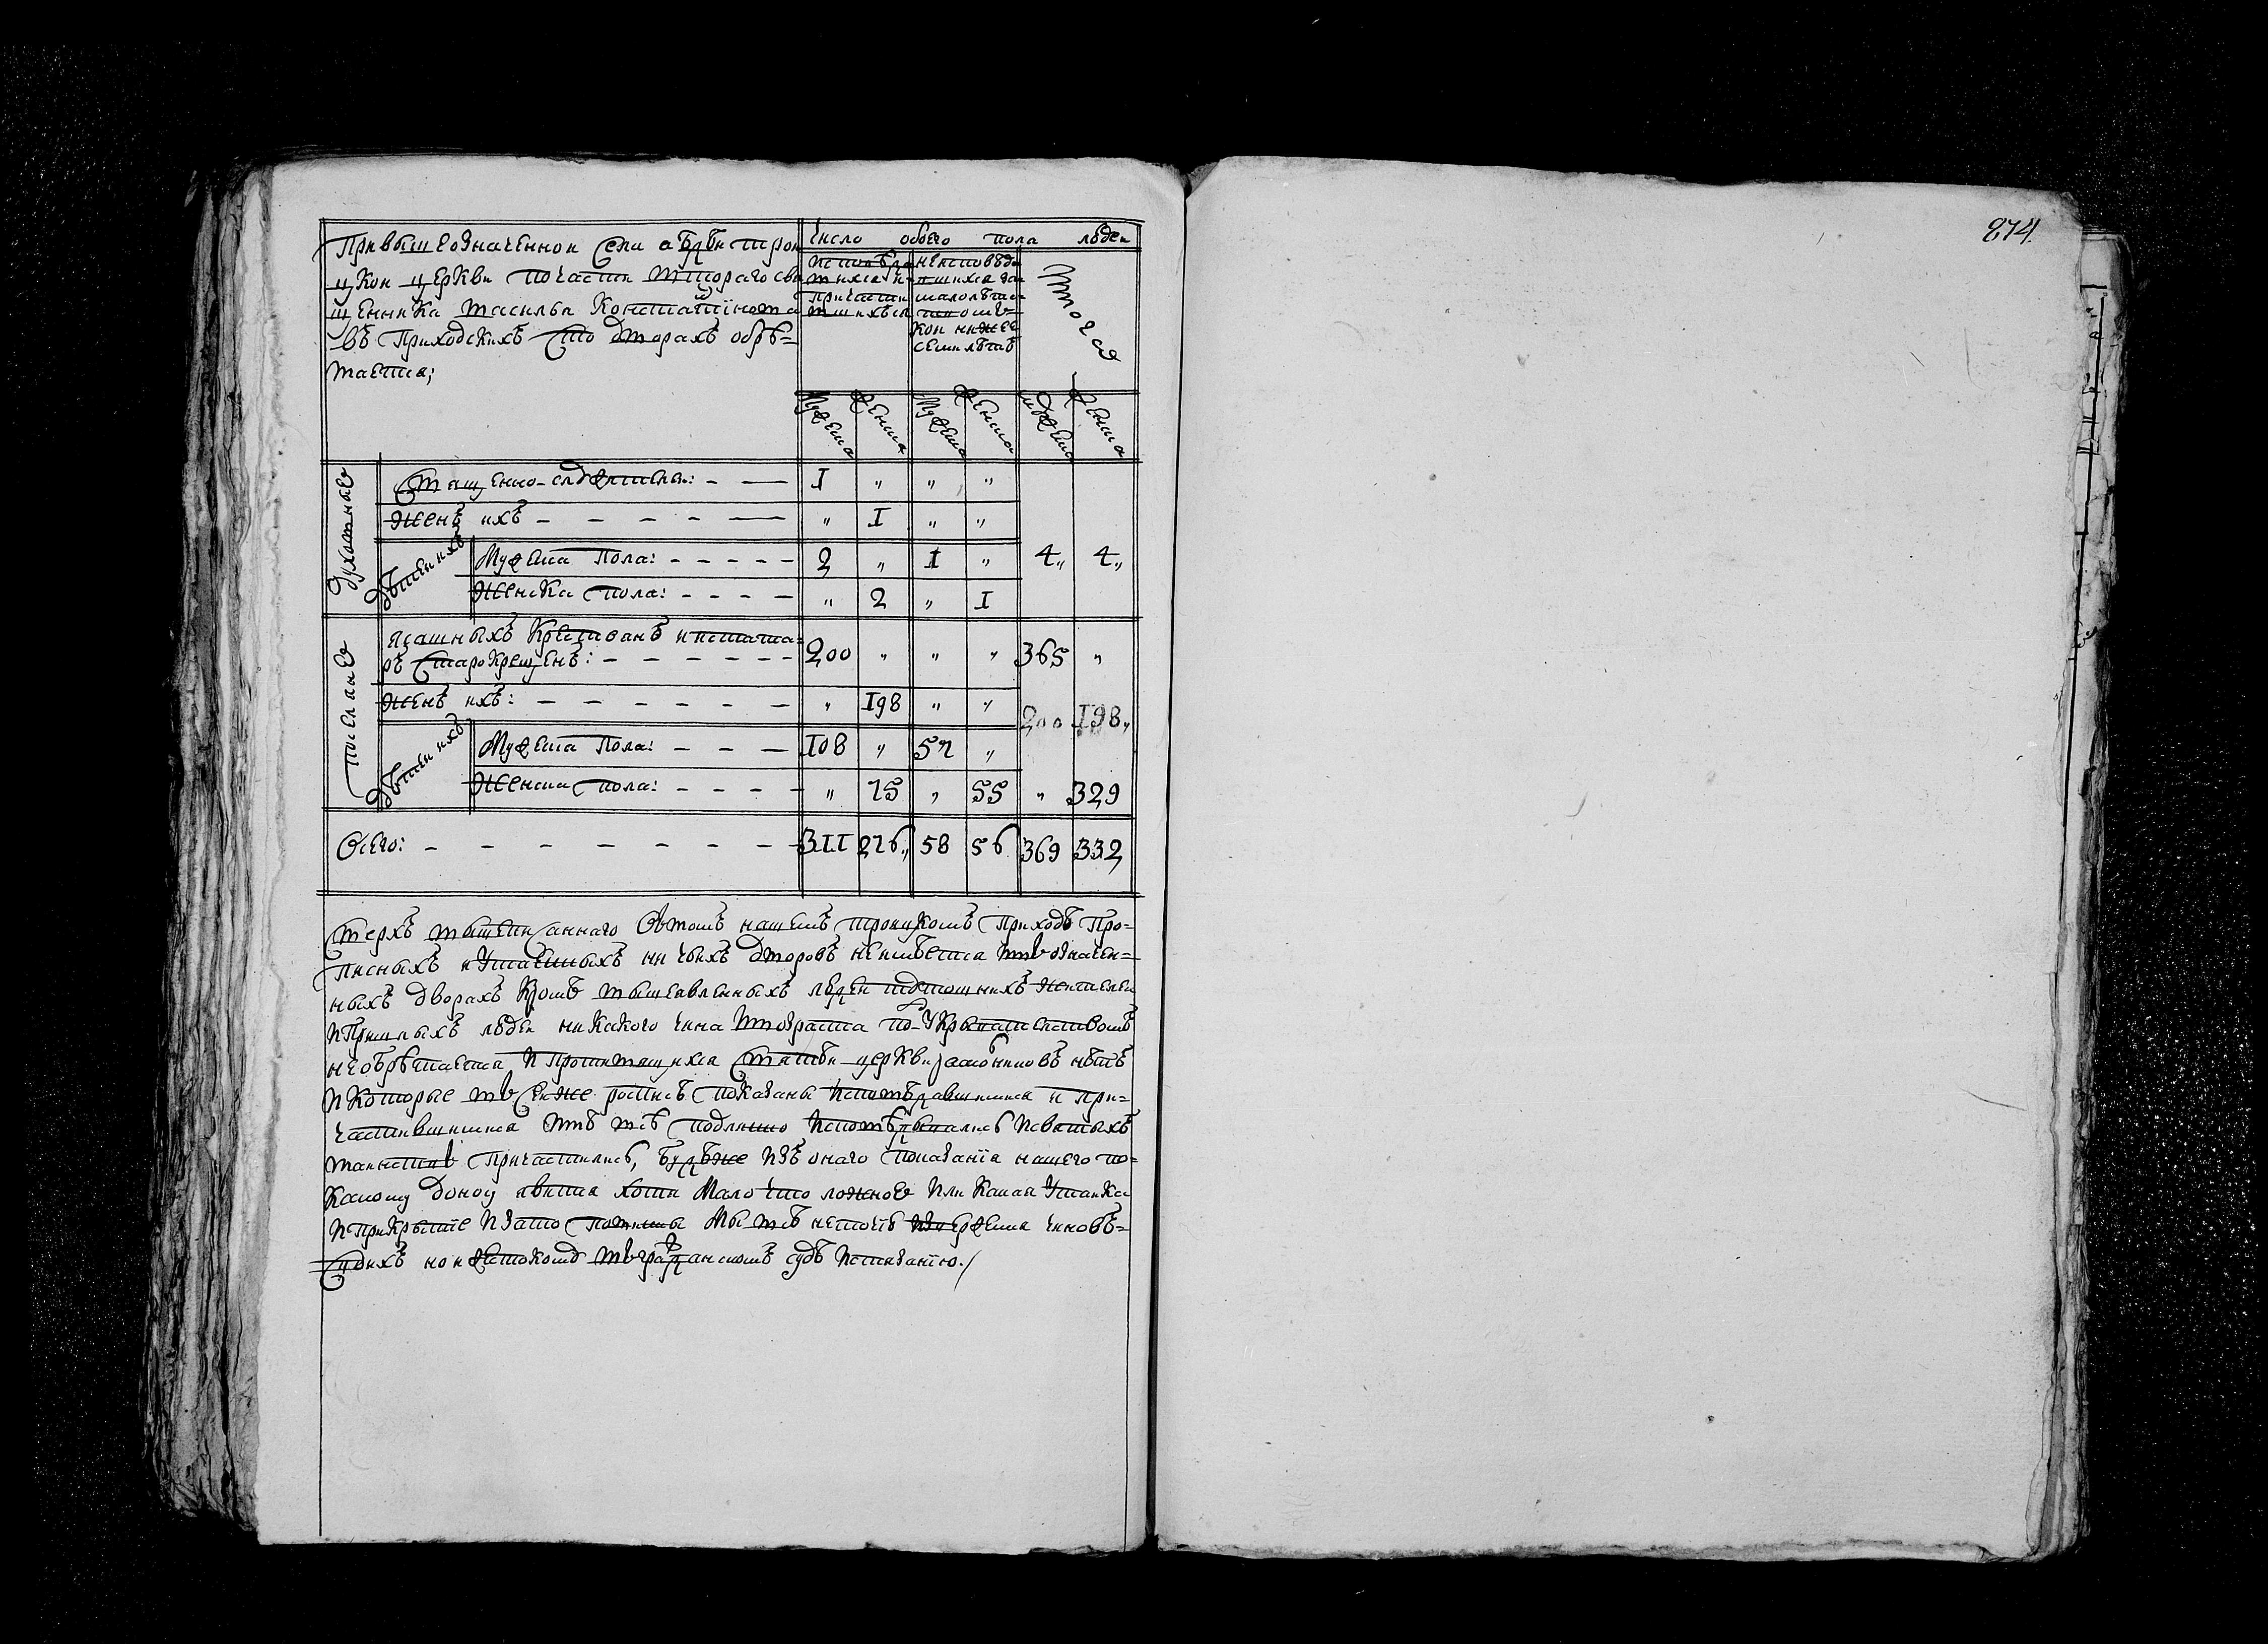 874
При вышеозначенной села Абди трои
цкой церкви по части второго свя
щенника Василья Константинова
въ приходскихъ сто дворахъ обрѣ=
таетца;
число обоего пола людей
исповѣда
вшихся и
причасти
вшихься
неисповѣда
вшихся за
малолѣтст
вомъ
кои ниже
семи лѣтъ
Итого
Мужеска
Женска
Мужеска
Женска
Мужеска
Женска
Духовные
Священно-служителей: 1 „ „ „
Женъ ихъ „ 1 „ „
дѣтей ихъ
Мужеска пола: 2 „ 1 „ 4„ 4„
Женска пола: „ 2 „ 1
Поселяне
Ясашныхъ крестьянъ и из тата=
ръ старокрещенъ: 200 „ „ „ 365 „
Женъ ихъ: „ 198 „ „
200 198„
дѣтей ихъ
Мужеска пола: 108 „ 57 „
Женска пола: „ 75 „ 55 „ 329
Всего: 311 276„ 58 56 369 332
Сверхъ вышеписаннаго в томъ нашемъ троицкомъ приходѣ про=
писныхъ и утаенныхъ ни чьихъ дворовъ не имѣется и в означен=
ныхъ дворахъ кромѣ вышеявленныхъ людей жителей
и пришлыхъ людей никакого чина и возраста под укрывательствомъ
не обрѣтаетца и противящихся святѣй церкви раскольниковъ нѣтъ
и которые в сей же росписѣ показаны исповѣдавшимися и при=
частившимися тѣ всѣ подлинно исповѣдывались и святыхъ
таинств причастились, буде же изъ онаго показанїя нашего по=
какому доносу явитца хотя мало что ложное или какая утайка
и прикрытїе и за то повинны мы всѣ не точїю извержения чиновъ=
своихъ но и жестокому в гражданскомъ судѣ истязанїю./